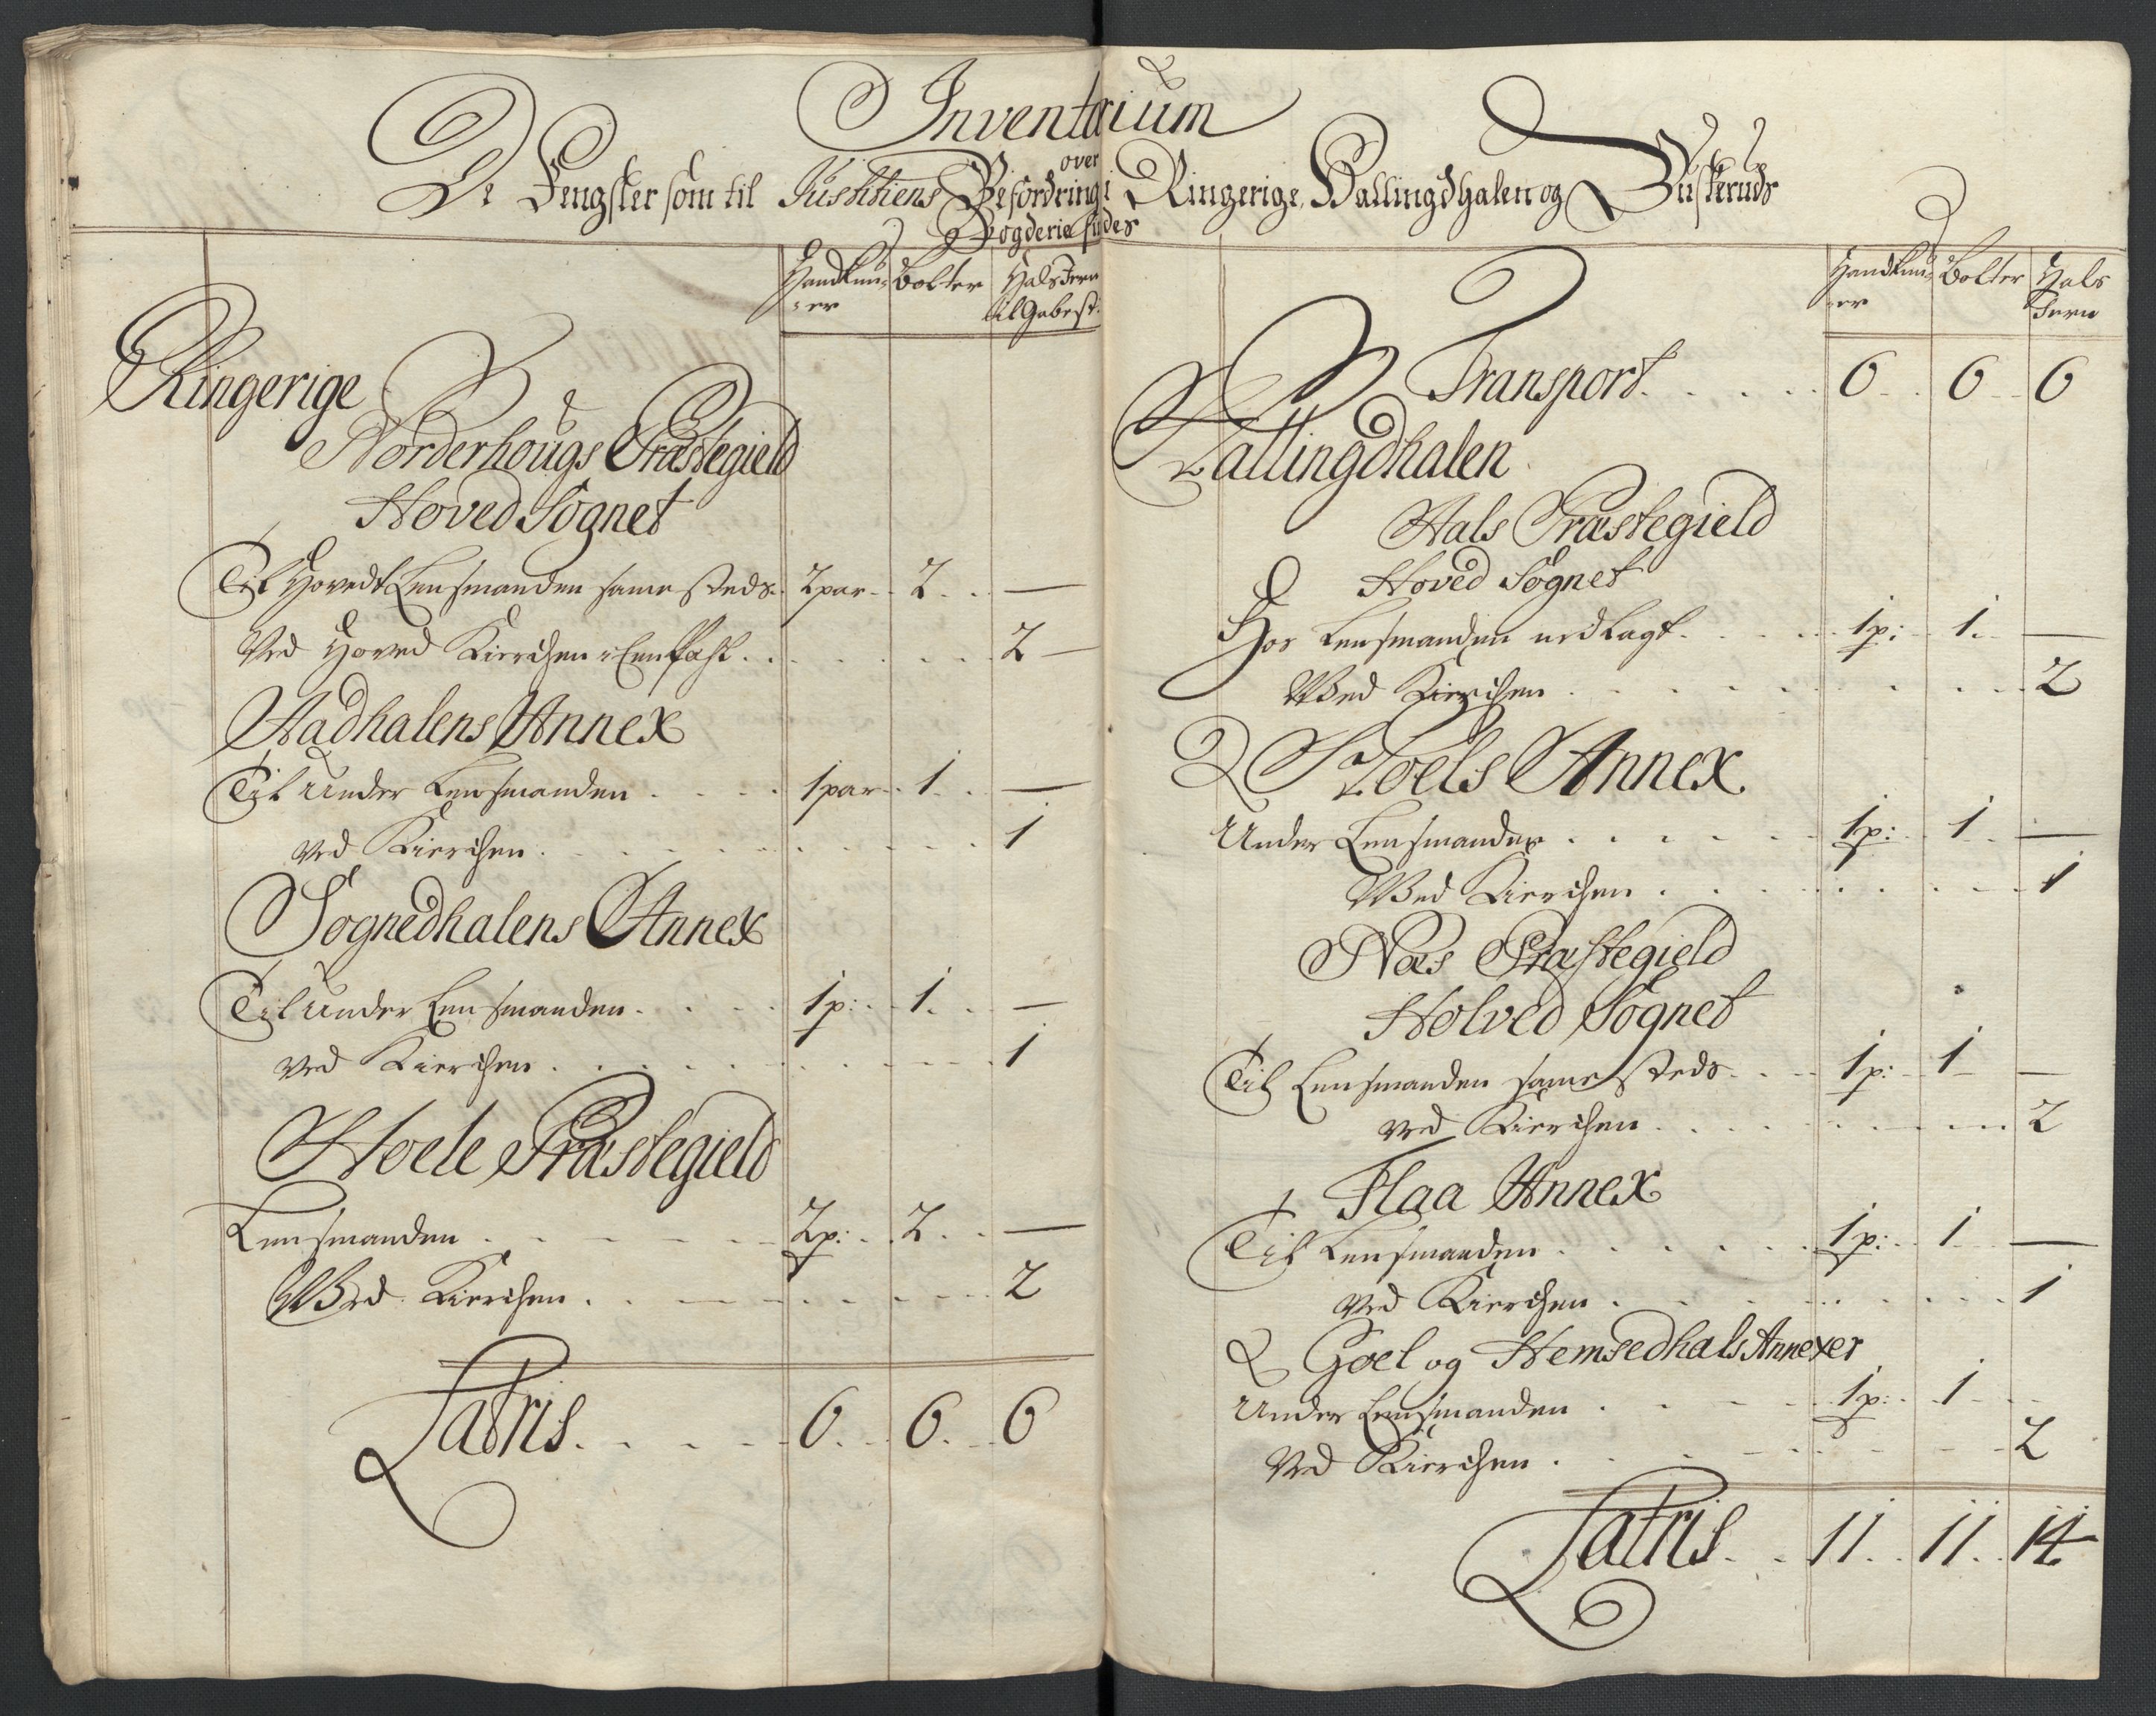 Inventarium
over
De Fengsler som til Justitiens Befordring i Ringerige, Hallingdhalen og Buskeruds
Fogderie findes
Handknu- Bolter Hals Jern
-er til Gabest:
Ringerige
Norderhougs Præstegield
Hoved Sognet
Til Hovedt Lensmanden samesteds. 2 par 2 —
Ved Hoved Kierchen i Een Pæhl 2 —
Aadhalens Annex
Til Under Lensmanden 1 par 1 —
Ved Kierchen 1
Sognedhalens Annex
Til Under Lensmanden 1 p: 1 —
Ved Kierchen 1
Hoele Præstegield
Lensmanden 2 p: 2 —
Ved Kierchen 2
Latris 6 6 6
Handknu- Bolter Hals
-er Jern
Transport 6 6 6
Hallingdhalen
Aals Præstegield
Hoved Sognet
Hos Lensmanden nedlagt 1 p: 1 —
Ved Kierchen 2
Hoels Annex
Under Lensmanden 1 p: 1 —
Ved Kierchen 1
Næs Præstegield
Holved Sognet
Til Lensmanden samesteds 1 p: 1 —
Ved Kierchen 2
Flaa Annex
Til Lensmanden 1 p: 1 —
Ved Kierchen 1
Goel og Hemsedhals Annexer
Under Lensmanden 1 p: 1
Ved Kierchen 2
Latris 11 11 14